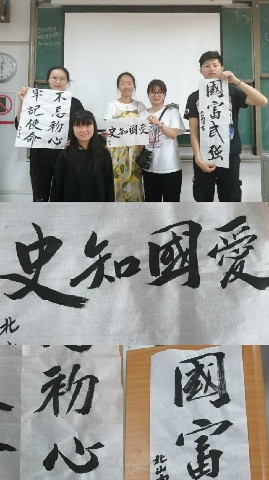 不忘初心
牢記使命
愛國知史
國富
强
愛國知史
北山
初心
國富
北山